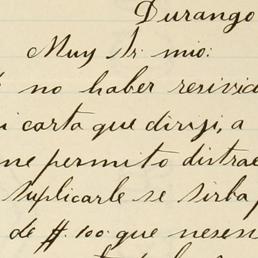 Durango
Muy Sr. mio:
no haber resivid
i carta que diriji, a
me permito distrae
suplicarle se sirba
de $. 100. que nesen